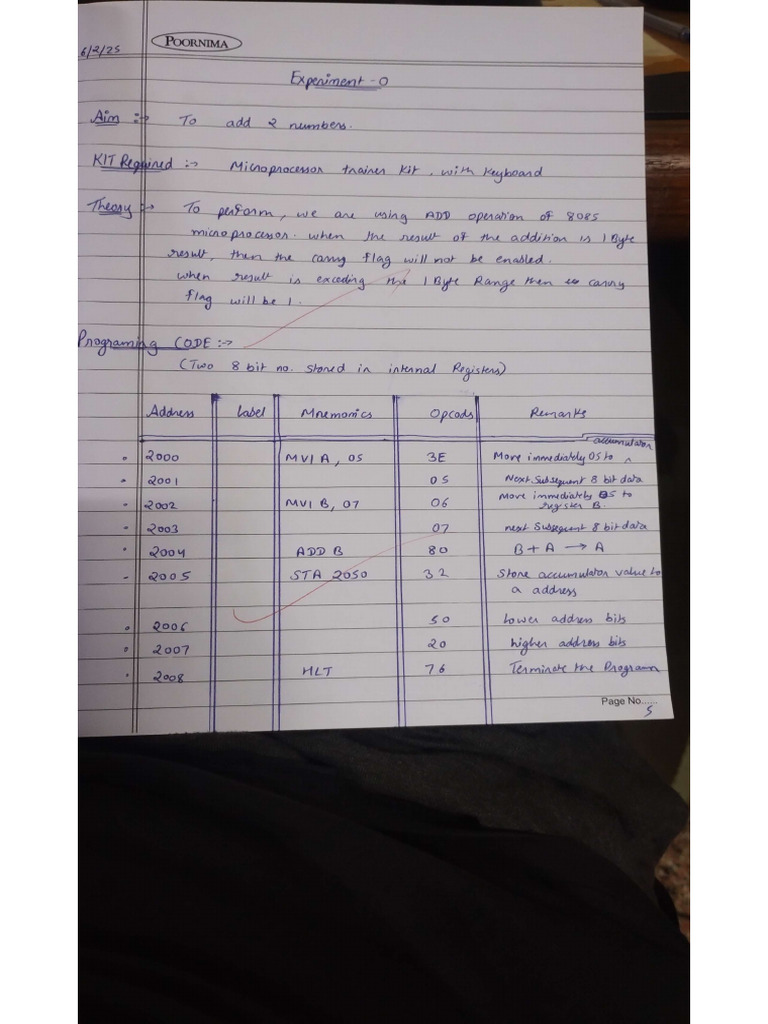 6/2/25 POORNIMA
Experiment - 0
Aim :-> To add 2 numbers.
KIT Required :- Microprocessor trainer kit, with keyboard
Theory :-> To perform, we are using ADD operation of 8085
microprocessor. when the result of the addition is 1 Byte
result, then the carry flag will not be enabled.
when result is exceding the 1 Byte Range then carry
flag will be 1.
Programing CODE :->
(Two 8 bit no. stored in internal Registers)
Address Label Mnemonics Opcods Remarks
accumulator
2000 MVI A, 05 3E Move immediately 05 to ^
2001 05 Next Subsequent 8 bit data
2002 MVI B, 07 06 Move immediately 05 to
register B.
2003 07 next Subsequent 8 bit data
2004 ADD B 80 B + A → A
2005 STA 2050 32 Store accumulator value to
a address
2006 50 Lower address bits
2007 20 higher address bits
2008 HLT 76 Terminate the Program
Page No...... 5